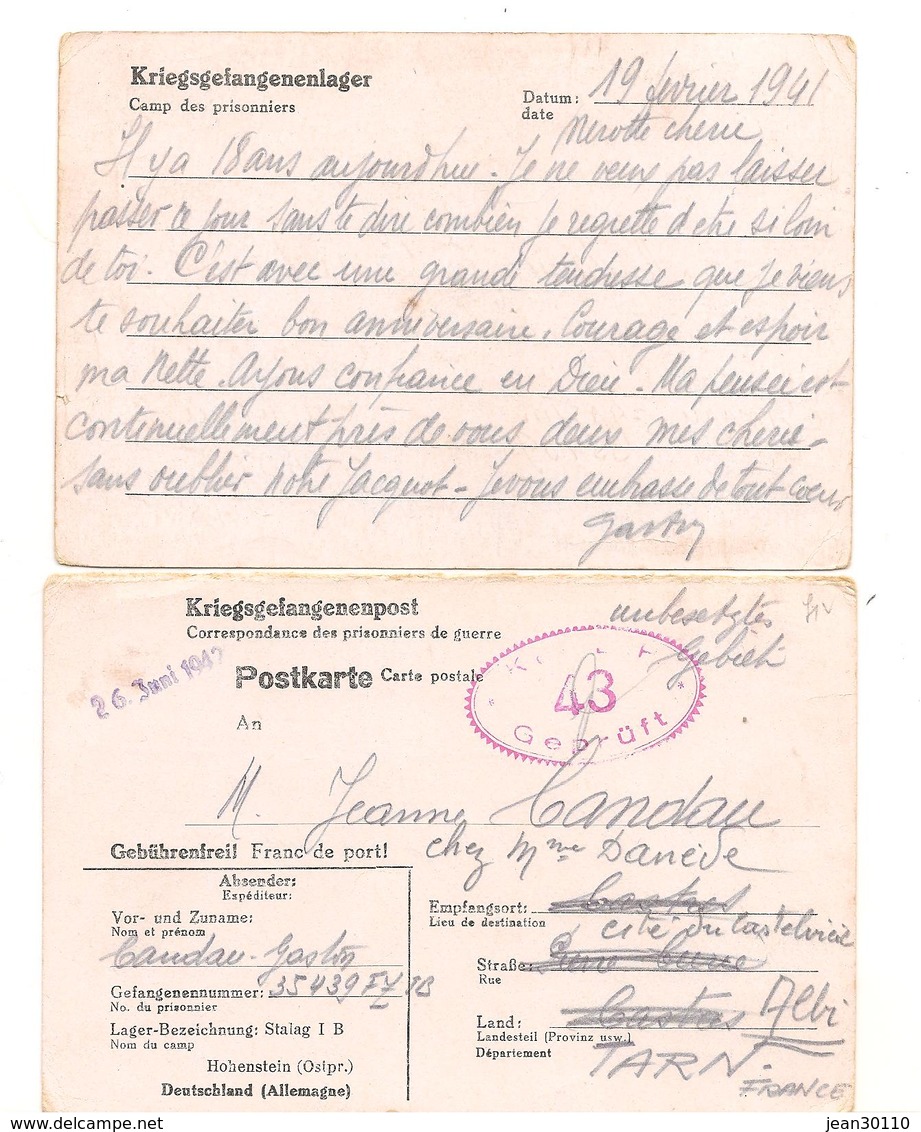 Kriegsgefangenenlager
Camp des prisonniers
Datum: 19 fevrier 1941
date
Nerotte cherie
Il y a 18 ans aujourdhui. Je ne veux pas laisser
passer ce jour sans te dire combien je regrette d etre si loin
de toi. C'est avec une grande tendresse que je viens
te souhaiter bon anniversaire. Courage et espoir
ma Nette. Ayons confiance en Dieu. Ma pensée est
continuellement près de vous deux mes cherie-
sans oublier notre Jacquot - Je vous embrasse de tout coeur
Gaston
Kriegsgefangenenpost
Correspondance des prisonniers de guerre
unbesetztes
Gebiet
26. Juni 1942
Postkarte Carte postale
43
Geprüft
An
M. Jeanne Candau
chez Mme Danède
Gebührenfrei! Franc de port!
Absender:
Expéditeur:
Vor- und Zuname:
Nom et prénom
Candau Gaston
Gefangenennummer: 35439
No. du prisonnier
Lager-Bezeichnung: Stalag I B
Nom du camp
Hohenstein (Ostpr.)
Deutschland (Allemagne)
Empfangsort: Castres
Lieu de destination
cité du Castelviel
Straße:
Rue
Land: Castres Albi
Landesteil (Provinz usw.)
Département
TARN.
FRANCE
delcampe.net
jean30110